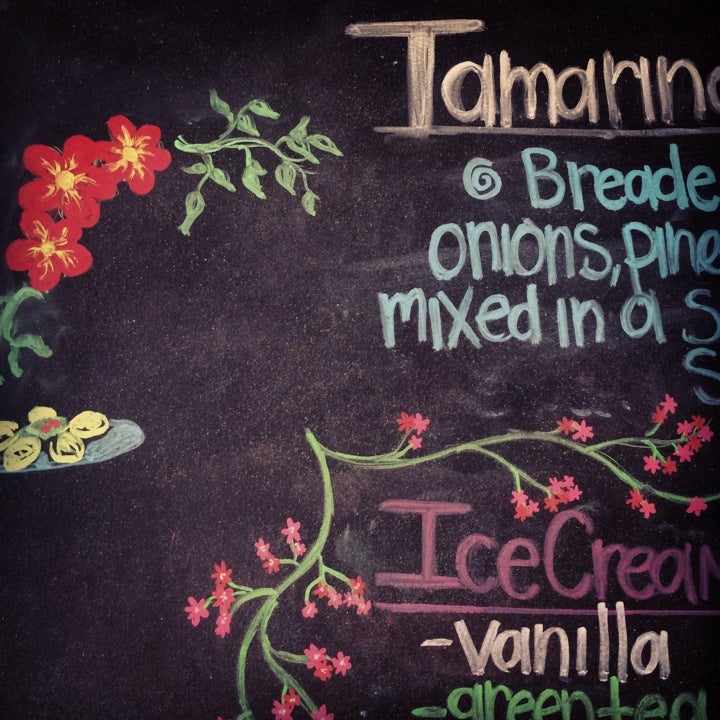 Tamarin
Breade
onions, pine
mixed in a S
S
Ice Cream
-Vanilla
-green tea